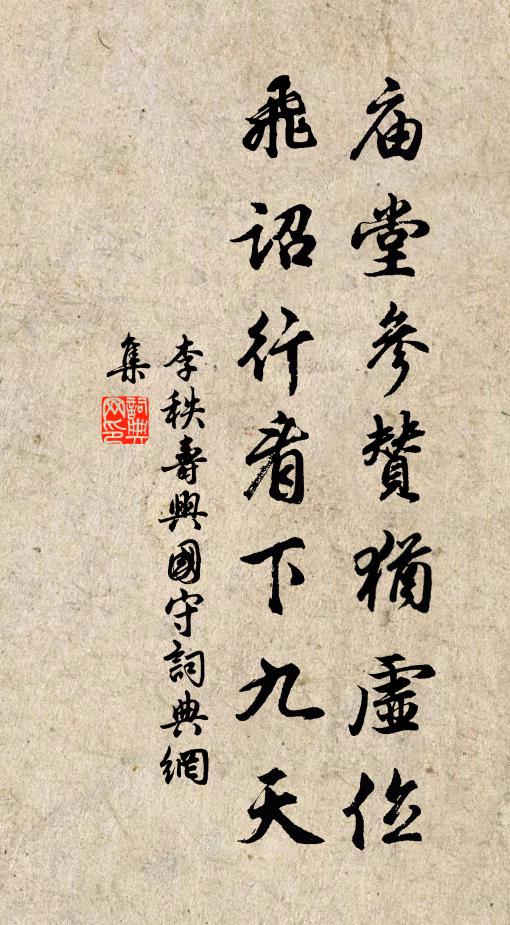 庙堂參贊猶虛位
飛詔行看下九天
李秩壽興國守詞典網
集
詞典網印